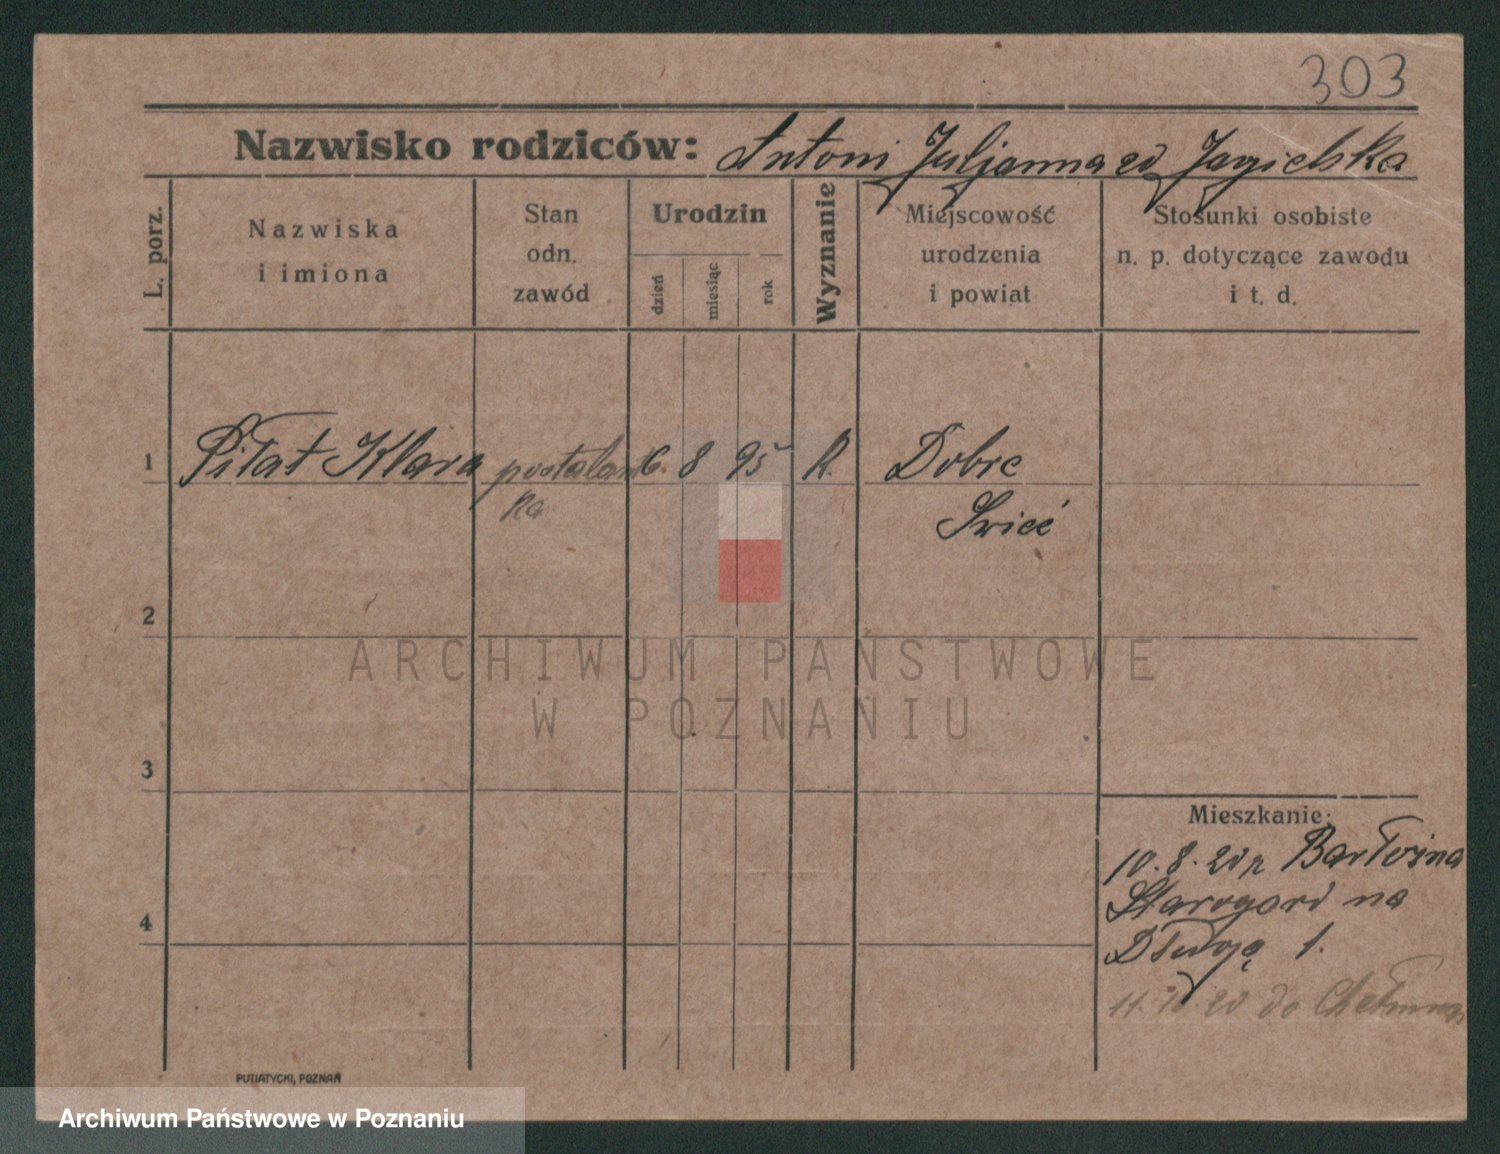 303
Nazwisko rodziców: Antoni Juljanna zd Jagielska
L. porz.
Nazwiska
i imiona
Stan
odn.
zawód
Urodzin
dzień
miesiąc
rok
Wyznanie
Miejscowość
urodzenia
i powiat
Stosunki osobiste
n. p. dotyczące zawodu
i t. d.
1 Piłat Klara postulant 6. 8 95 R. Dobre
ka Swieć
2
3
4
Mieszkanie:
10.8.20 z
Starogard na
Długą 1.
11. 10. 20 do
PUTIATYCKI, POZNAŃ
ARCHIWUM PAŃSTWOWE
W POZNANIU
Archiwum Państwowe w Poznaniu